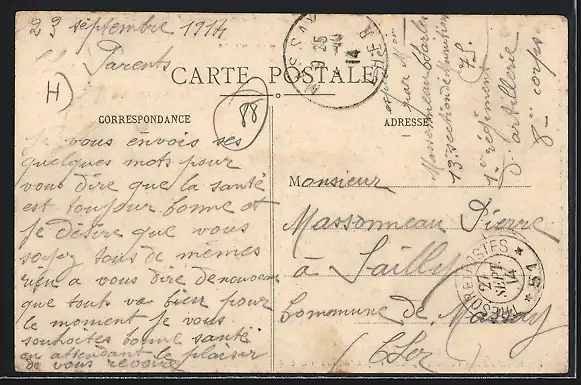 23 septembre 1914
Parents
CARTE POSTALE
H
88
CORRESPONDANCE
ADRESSE
Je vous envois ses
quelques mots pour
vous dire que la santé
est toujour bonne et
je désire que vous
soyez tous de mêmes
rien a vous dire de nouveau
que touts va bien pour
le moment je vous
souhaites bonne santé
en attendant le plaisir
de vous revoir
Monsieur
Massonneau Pierre
à Sailly
Commune de Massay
Cher
MASSAY
9 25
14
CHER
TRESOR ET POSTES
21
SEPT
14
* 51 *
par
Massonneau Charles
13e section de munition
75
1er régiment
d'artillerie
8e corps